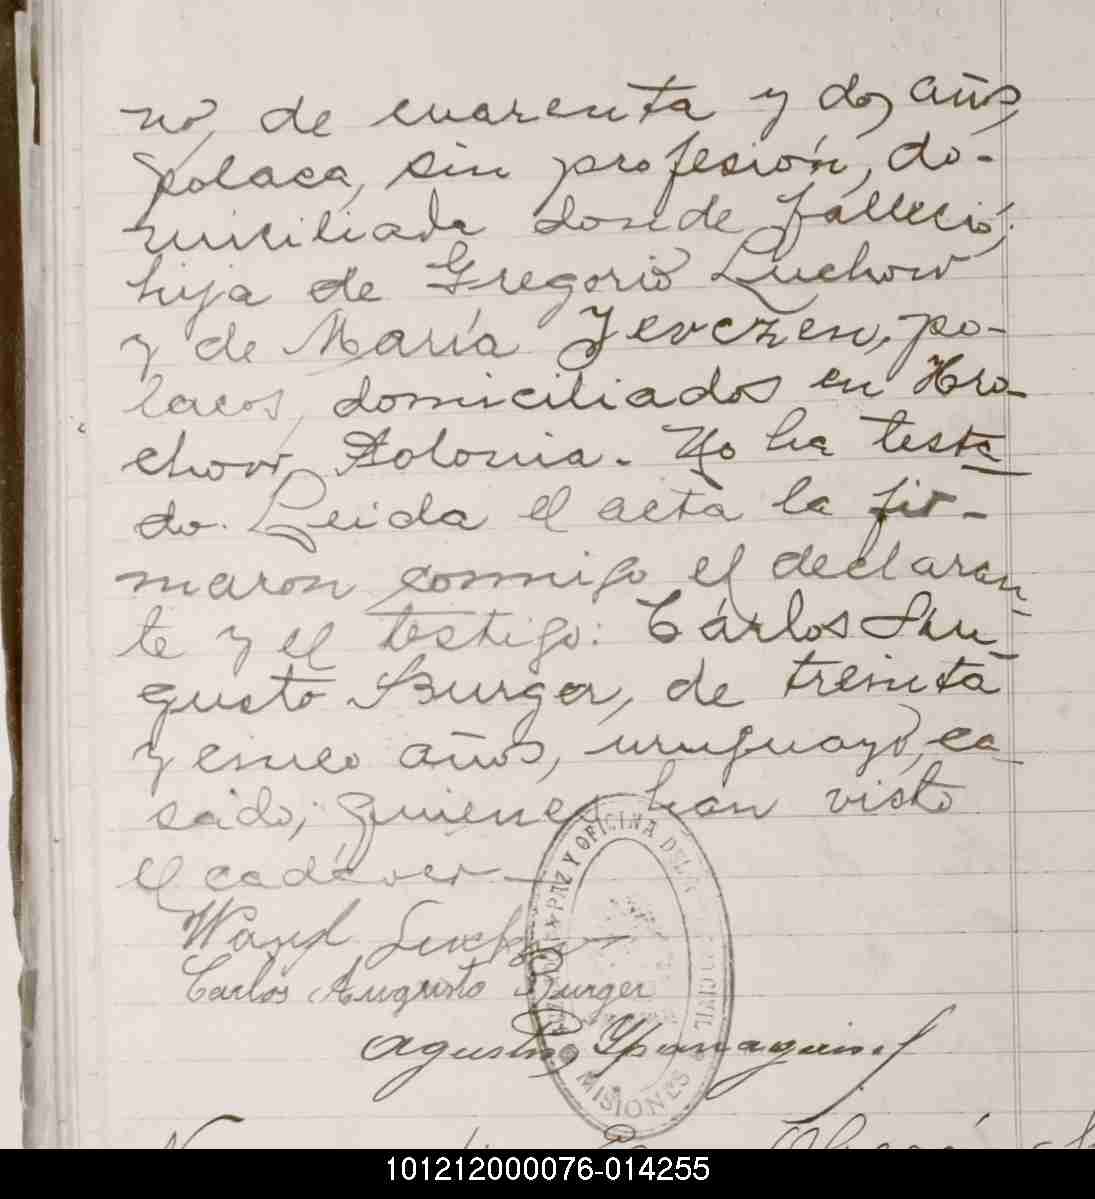 no, de cuarenta y dos años,
polaca, sin profesión, do-
miciliada donde falleció;
hija de Gregorio Luchow
y de María Jevczen, po-
lacos, domiciliados en Hro-
chow, Polonia. No ha testa
do. Leida el acta la fir-
maron conmigo el declaran-
te y el testigo: Cárlos Au-
gusto Burger, de treinta
y cinco años, uruguayo, ca-
sado; quienes han visto
el cadáver—
Carlos Augusto Burger
Agustin
PAZ Y OFICINA DEL CIVIL
MISIONES
101212000076-014255